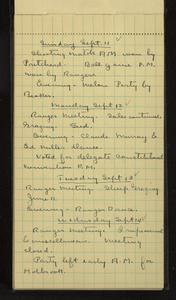 Sunday Sept. 11
Shooting match A.M. won by
Ball game P.M.
won by Rangers
Evening - Melon Party by
Monday Sept 12
Ranger Meeting. Sales continued.
Grazing.
Evening - Claude Murray &
Ed Mills. Dance.
Voted for delegate Constitutional
Convention P.M.
Tuesday Sept 13
Ranger Meeting. Sheep Grazing
Evening - Ranger Dance.
Wednesday Sept 14
Ranger Meeting.
& miscellaneous. Meeting
closed.
Party left early A.M. for